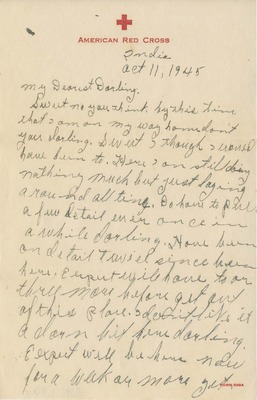 AMERICAN RED CROSS
India
Oct 11, 1945
My Dearest Darling.
Sweet no you think by this time
that I am on my way home don't
you darling. Sweet I though I would
have been to. Here I am still doing
nothing much but just laying
around all time. Do have to pull
a few detail ever once in
a while darling. Have been
on detail sense been
here. Expect will have to or
three more before get out
of this place. I don't like it
a darn bit here darling.
Expect will be here now
for a week or more yet